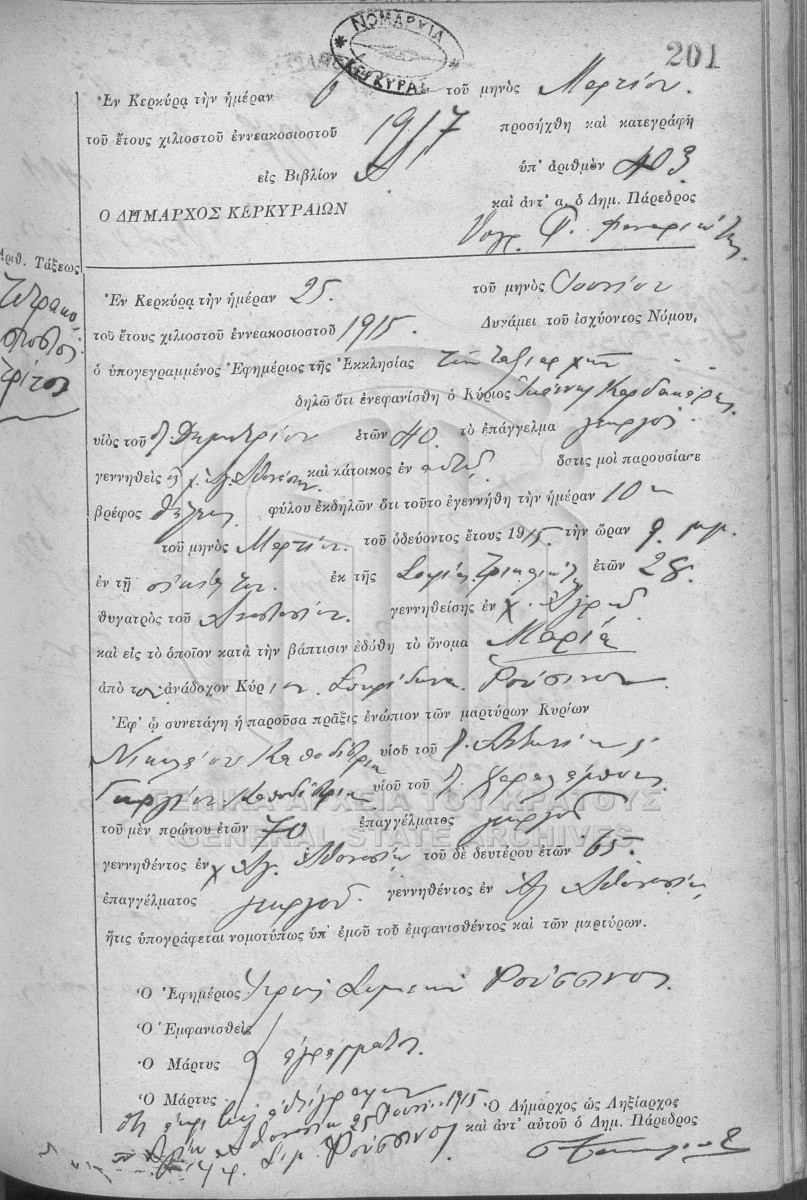 ΝΟΜΑΡΧΙΑ ΚΕΡΚΥΡΑΣ
201
Ἐν Κερκύρᾳ τὴν ἡμέραν τοῦ μηνὸς Μαρτίου.
τοῦ ἔτους χιλιοστοῦ ἐννεακοσιοστοῦ 1917 προσήχθη καὶ κατεγράφη
εἰς Βιβλίον ὑπ' ἀριθμὸν 403
Ο ΔΗΜΑΡΧΟΣ ΚΕΡΚΥΡΑΙΩΝ καὶ ἀντ' α. ὁ Δημ. Πάρεδρος
Ἀριθ. Τάξεως
Τετρακο
σιοστὸν
τρίτον
Ἐν Κερκύρᾳ τὴν ἡμέραν 25. τοῦ μηνὸς Ἰουνίου
τοῦ ἔτους χιλιοστοῦ ἐννεακοσιοστοῦ 1915. Δυνάμει τοῦ ἰσχύοντος Νόμου,
ὁ ὑπογεγραμμένος Ἐφημέριος τῆς Ἐκκλησίας τῶν Ταξιαρχῶν
δηλῶ ὅτι ἐνεφανίσθη ὁ Κύριος Ἰωάννης
υἱὸς τοῦ π. Δημητρίου ἐτῶν 40. τὸ ἐπάγγελμα γεωργός.
γεννηθεὶς ἐν χ. Ἁγ. Ἀθανάσιον καὶ κάτοικος ἐν αὐτῷ. ὅστις μοὶ παρουσίασε
βρέφος θῆλυ φύλου ἐκδηλῶν ὅτι τοῦτο ἐγεννήθη τὴν ἡμέραν 10
τοῦ μηνὸς Μαρτίου. τοῦ ὁδεύοντος ἔτους 1915. τὴν ὥραν 9. μ.μ.
ἐν τῇ οἰκίᾳ του. ἐκ τῆς Σοφίας ἐτῶν 28.
θυγατρὸς τοῦ Ἀναστασίου. γεννηθείσης ἐν χ.
καὶ εἰς τὸ ὁποῖον κατὰ τὴν βάπτισιν ἐδόθη τὸ ὄνομα Μαρία
ἀπὸ τὸν ἀνάδοχον Κύριον. Σπυρίδωνα Ῥούσινον
Ἐφ' ᾧ συνετάγη ἡ παροῦσα πρᾶξις ἐνώπιον τῶν μαρτύρων Κυρίων
Νικολάου Καποδίστρια υἱοῦ τοῦ π. Ἀντωνίου
Γεωργίου Καποδίστρια υἱοῦ τοῦ π. Χαραλάμπους.
ΓΕΝΙΚΑ ΑΡΧΕΙΑ ΤΟΥ ΚΡΑΤΟΥΣ
τοῦ μὲν πρώτου ἐτῶν 70 ἐπαγγέλματος γεωργοῦ
GENERAL STATE ARCHIVES
γεννηθέντος ἐν χ Ἁγ. Ἀθανασίῳ τοῦ δὲ δευτέρου ἐτῶν 65.
ἐπαγγέλματος γεωργοῦ. γεννηθέντος ἐν Ἁγ Ἀθανασίῳ,
ἥτις ὑπογράφεται νομοτύπως ὑπ' ἐμοῦ τοῦ ἐμφανισθέντος καὶ τῶν μαρτύρων.
Ὁ Ἐφημέριος Ἱερεὺς Ῥούσσινος.
Ὁ Ἐμφανισθεὶς
Ὁ Μάρτυς ἀγράμματοι.
Ὁ Μάρτυς
ὅτι ἀκριβὲς ἀντίγραφον
25 Ἰουνίου 1915 Ὁ Δήμαρχος ὡς Ληξίαρχος
Ῥούσσινος καὶ ἀντ' αὐτοῦ ὁ Δημ. Πάρεδρος